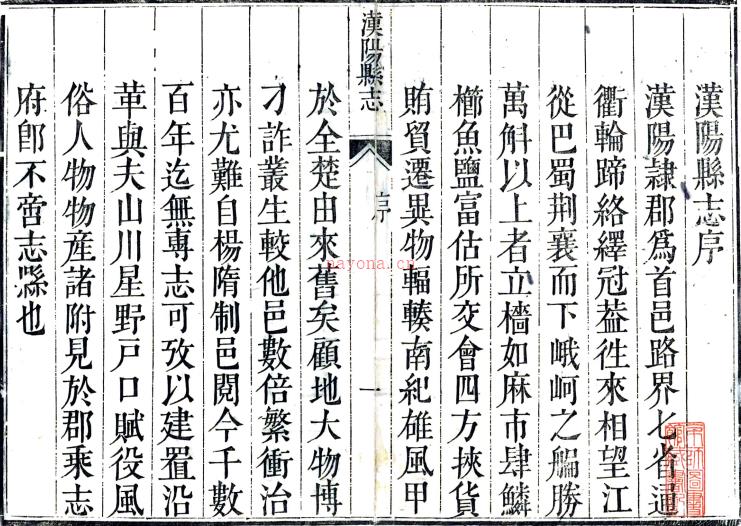 漢陽縣志序
漢陽隷郡爲首邑路界七省通
衢輪蹄絡繹冠葢徃來相望江
從巴蜀荆襄而下峨岢之艑勝
萬斛以上者立檣如麻市肆鱗
櫛魚鹽富估所交會四方挾貨
賄貿遷異物輻輳南紀雄風甲
漢陽縣志
序
一
於全楚由來舊矣顧地大物博
刁詐叢生較他邑數倍繁衝治
亦尤難自楊隋制邑閱今千數
百年迄無專志可攷以建置沿
革與夫山川星野戸口賦役風
俗人物物産諸附見於郡乘志
府卽不啻志縣也
nayona.cn